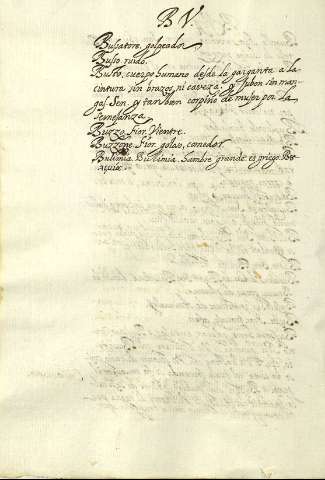 B V.
Bussatore, golpeador.
Busso, ruido.
Busto, cuerpo humano desde la garganta a la
cintura sin brazos, ni caveza, y Jubon sin man-
gas. Sen. y tambien corpiño de muger por la
semejanza.
Buzzo, Fior. Vientre.
Buzzone, Fior. goloso, comedor.
Bulimia, Bulimia hambre grande es griego.